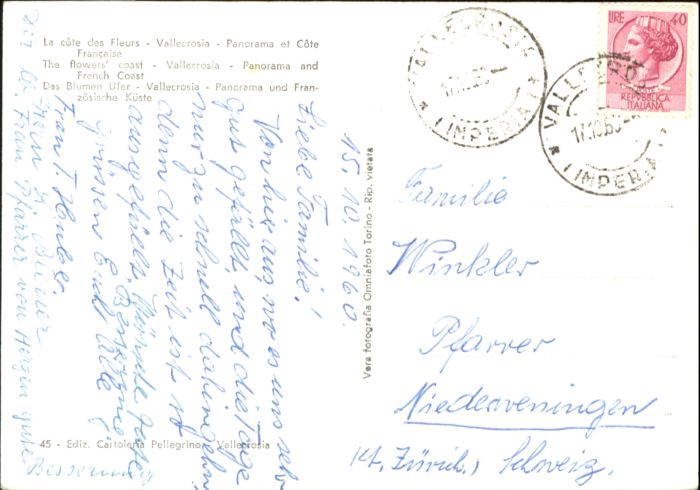 La côte des Fleurs - Vallecrosia - Panorama et Côte
Française
The flowers' coast - Vallecrosia - Panorama and
French Coast
Das Blumen Ufer - Vallecrosia - Panorama und Fran-
zösische Küste
15.10.1960.
Liebe Familie!
Von hier aus, wo es uns sehr
gut gefällt, und die Tage
nur zu schnell dahingehn,
denn die Zeit ist so
ausgefüllt. Wünsche gute
Besserung
grüssen Euch Alle
Frau T. Huber.
Frau
Dir lb. Frau Pfarrer von Herzen gute
Besserung
45 - Ediz. Cartoleria Pellegrino - Vallecrosia
Vera fotografia Omniafoto Torino - Rip. vietata
VALLECROSIA
17.10.60
(IMPERIA)
VALLECROSIA
17.10.60
(IMPERIA)
LIRE 40
REPVBBLICA
ITALIANA
Familie
Winkler
Pfarrer
Niederweningen
Kt. Zürich. Schweiz.